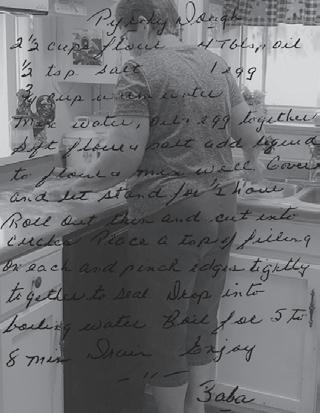 Pyrohy Dough
2 1/2 cups flour 4 Tbls, oil
1/2 tsp salt 1 egg
3/4 cup warm water
Mix water, oil & egg together
Sift flour & salt add liquid
to flour & mix well Cover
and let stand for 1/2 hour
Roll out thin and cut into
circles Place a tsp of filling
On each and pinch edges tightly
together to seal Drop into
boiling water Boil for 5 to
8 min Drain Enjoy
— " —
Baba